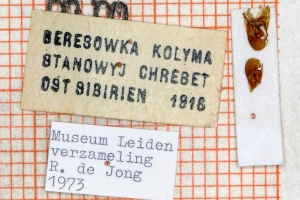 BERESOWKA KOLYMA
STANOWYJ CHREBET
OST SIBIRIEN 1916
Museum Leiden
verzameling
R. de Jong
1973